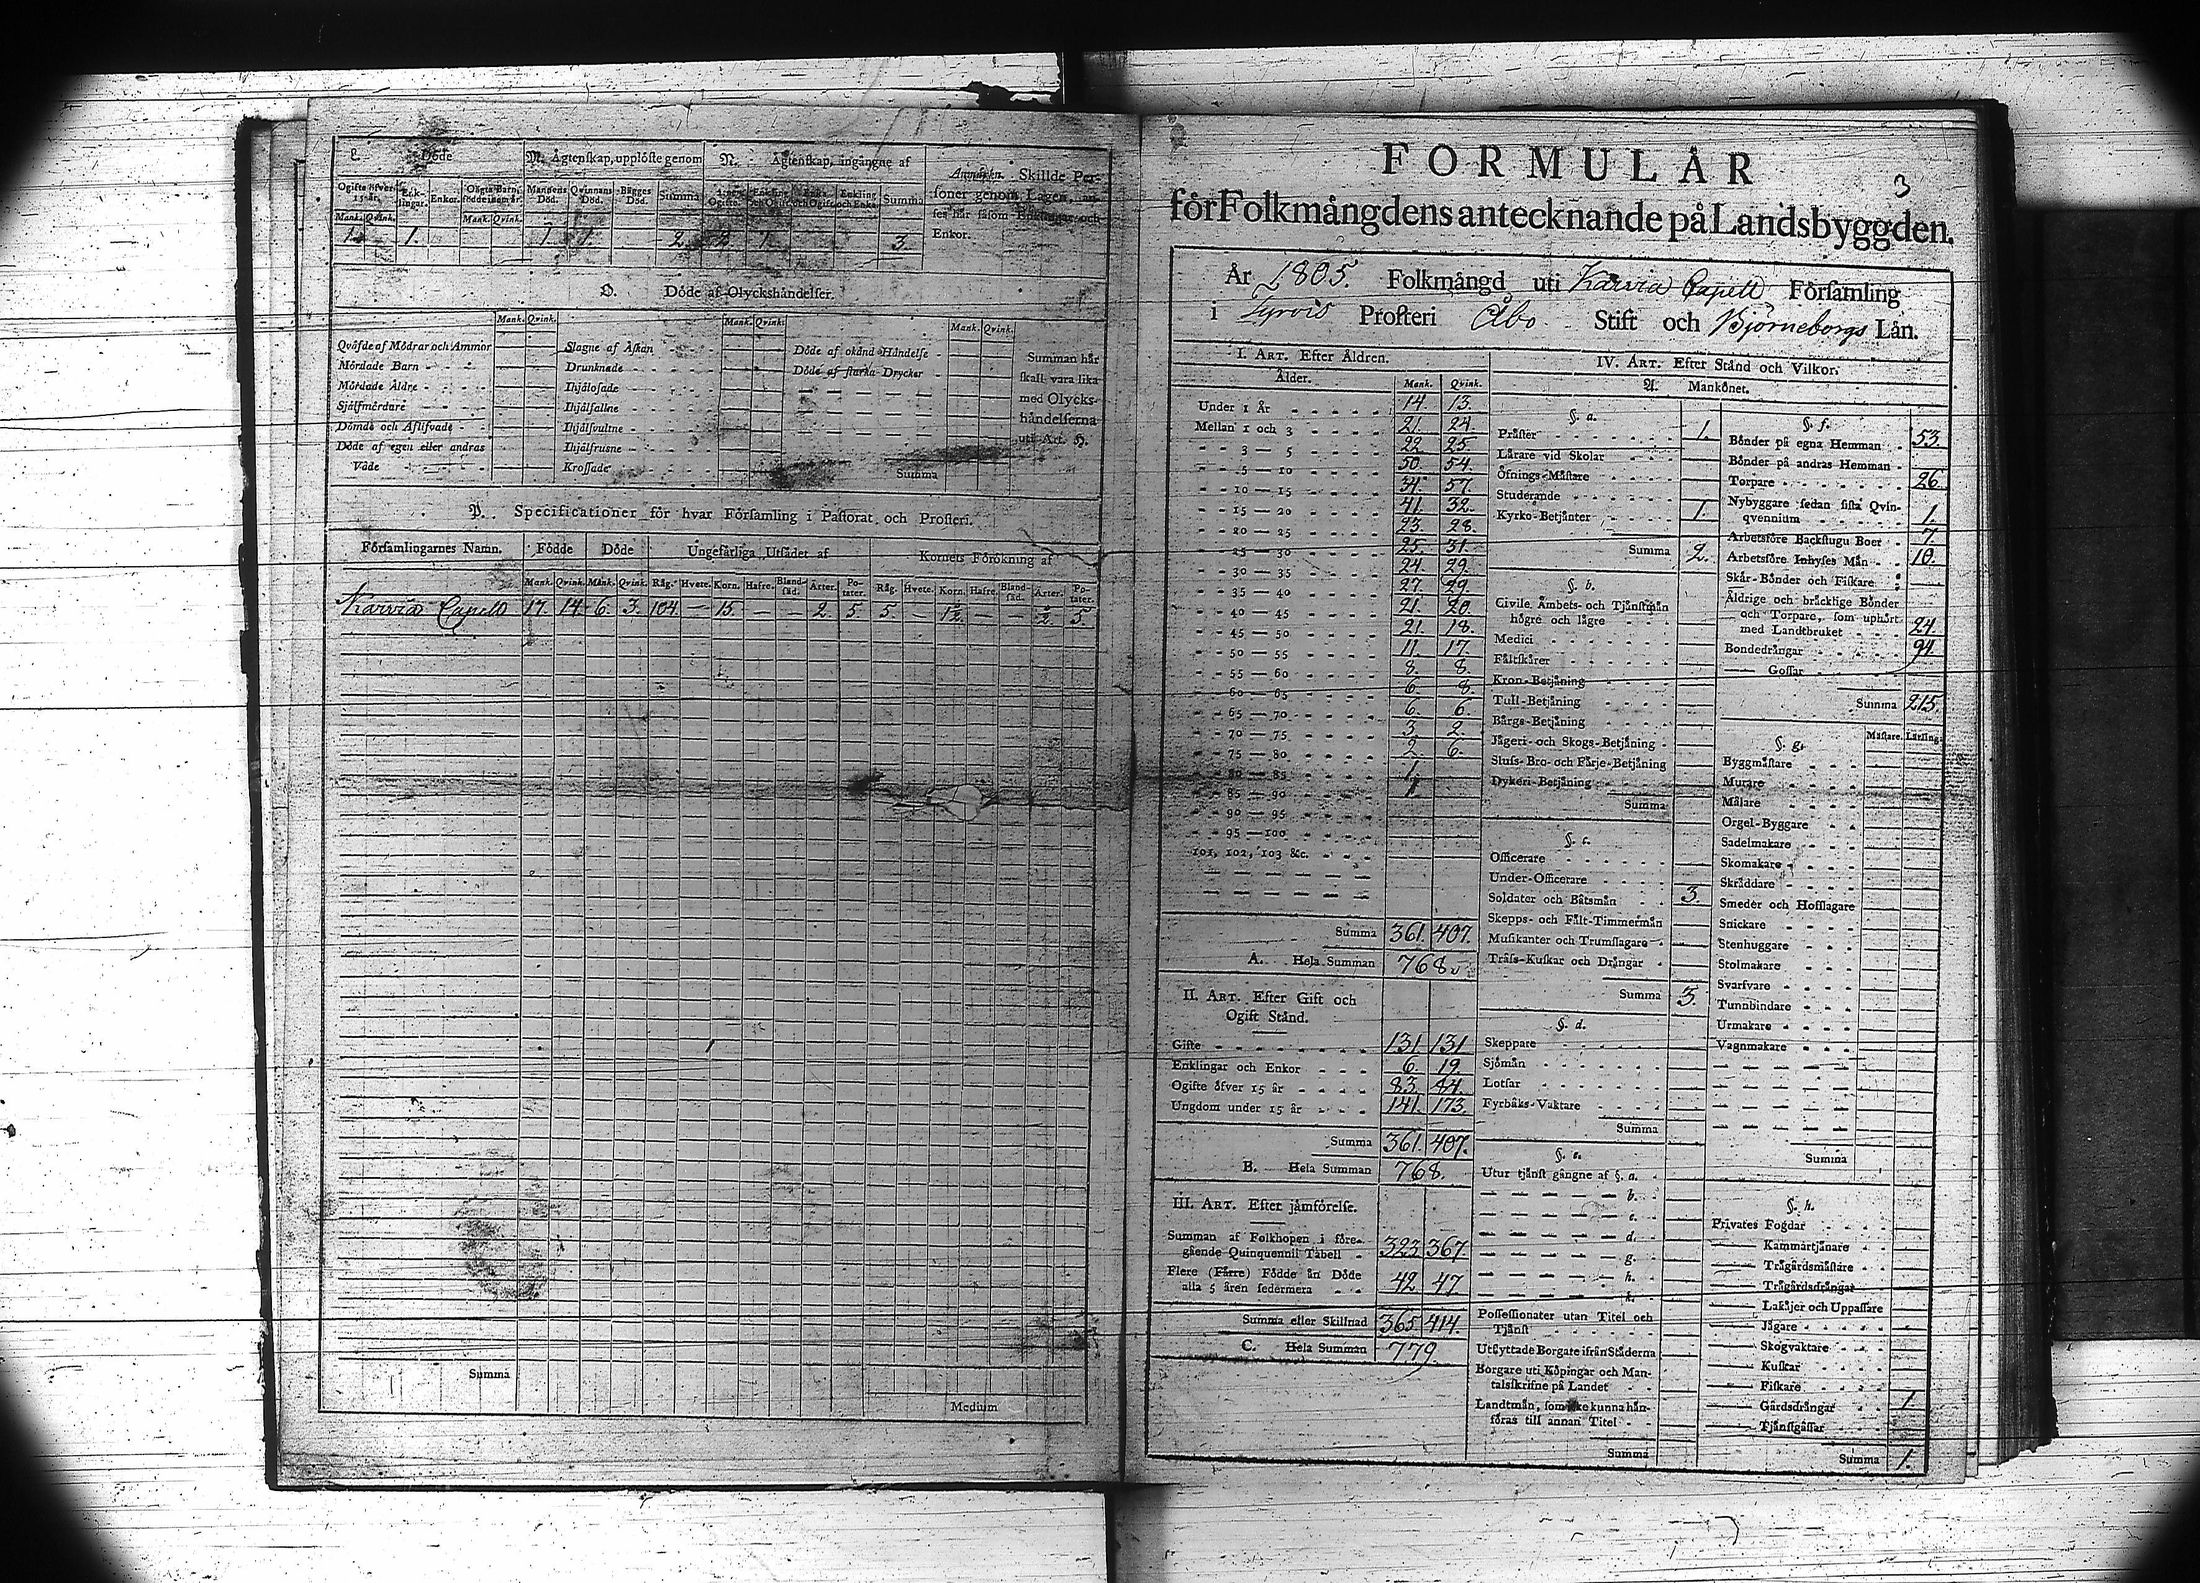 L. Döde
M. Ägtenskap, upplöste genom
N. Ägtenskap, ingångne af
Ogifte öfver 15 år. Enklingar. Enkor. Oägta Barn, födde inom år. Mannens Död. Qvinnans Död. Bägges Död. Summa
Mank. Qvink. Mank. Qvink.
1. 1. 1. 1. 2. 2. 1. 3.
Anmärkn. Skillde Personer genom Lagen, anses här såsom Enklingar och Enkor.
O. Döde af Olyckshändelser.
Mank. Qvink. Mank. Qvink. Mank. Qvink.
Qväfde af Mödrar och Ammor
Mördade Barn
Mördade Äldre
Själfmördare
Dömde och Aflifvade
Döde af egen eller andras Våde
Slagne af Åskan
Drunknade
Ihjälosade
Ihjälfallne
Ihjälsvultne
Ihjälfrusne
Krossade
Döde af okänd Händelse
Döde af starka Drycker
Summa
Summan här
skall vara lika
med Olycks-
händelserna
uti Art. H.
P. Specificationer för hvar Församling i Pastorat och Prosteri.
Församlingarnes Namn. Födde Döde Ungefärliga Utsädet af Kornets Förökning af
Mank. Qvink. Mank. Qvink. Råg. Hvete. Korn. Hafre. Blandsäd. Ärter. Potater. Råg. Hvete. Korn. Hafre. Blandsäd. Ärter. Potater.
Karvia Capell 17. 14. 6. 3. 104 — 15. — — 2. 5. 5. —
Summa
Medium
3
FORMULÅR
för Folkmängdens antecknande på Landsbyggden.
År 1805. Folkmängd uti Karvia Capell Församling
i Tyrvis Prosteri Åbo Stift och Björneborgs Län.
I. ART. Efter Åldren.
Ålder. Mank. Qvink.
Under 1 År 14 13.
Mellan 1 och 3 21. 24.
3 — 5 22 25.
5 — 10 50 54.
10 — 15 34. 57.
15 — 20 41. 32.
20 — 25 23. 28.
25 — 30 25. 31.
30 — 35 24. 29.
35 — 40 27. 29.
40 — 45 21. 20.
45 — 50 21. 18.
50 — 55 11. 17.
55 — 60 8. 8.
60 — 65 6. 8.
65 — 70 6. 6.
70 — 75 3. 2.
75 — 80 2. 6.
80 — 85 1.
85 — 90 1.
90 — 95
95 — 100
101, 102, 103 &c.
Summa 361. 407.
A. Hela Summan 768.
II. ART. Efter Gift och
Ogift Stånd.
Gifte 131. 131
Enklingar och Enkor 6. 19.
Ogifte öfver 15 år 83. 84.
Ungdom under 15 år 141. 173.
Summa 361. 407.
B. Hela Summan 768.
III. ART. Efter jämförelse.
Summan af Folkhopen i före-
gående Quinquennii Tabell 323 367.
Flere (Färre) Födde än Döde
alla 5 åren sedermera 42 47
Summa eller Skillnad 365 414.
C. Hela Summan 779.
IV. ART. Efter Stånd och Vilkor.
A. Mankönet.
§. a.
Präster 1.
Lärare vid Skolar
Öfnings-Mästare
Studerande
Kyrko-Betjänter 1.
Summa 2.
§. b.
Civile Ämbets- och Tjänstmän
högre och lägre
Medici
Fältskärer
Kron-Betjäning
Tull-Betjäning
Bärgs-Betjäning
Jägeri- och Skogs-Betjäning
Sluss- Bro- och Färje-Betjäning
Dykeri-Betjäning
Summa
§. c.
Officerare
Under-Officerare
Soldater och Båtsmän 3.
Skepps- och Fält-Timmermän
Musikanter och Trumslagare
Träss-Kuskar och Drängar
Summa 3.
§. d.
Skeppare
Sjömän
Lotsar
Fyrbåks-Vaktare
Summa
§. e.
Utur tjänst gångne af §. a.
b.
c.
d.
g.
h.
k.
Possessionater utan Titel och
Tjänst
Utflyttade Borgare ifrån Städerna
Borgare uti Köpingar och Man-
talsskrifne på Landet
Landtmän, som icke kunna hän-
föras till annan Titel
Summa
§. f.
Bönder på egna Hemman 53.
Bönder på andras Hemman
Torpare 26.
Nybyggare sedan sista Qvin-
qvennium 1.
Arbetsföre Backstugu Boer 7.
Arbetsföre Inhyses Män 10.
Skär-Bönder och Fiskare
Äldrige och bräcklige Bönder
och Torpare, som uphört
med Landtbruket 24.
Bondedrängar 94.
Gossar
Summa 215.
§. g. Mästare. Lärling.
Byggmästare
Murare
Målare
Orgel-Byggare
Sadelmakare
Skomakare
Skräddare
Smeder och Hofslagare
Snickare
Stenhuggare
Stolmakare
Svarfvare
Tunnbindare
Urmakare
Vagnmakare
Summa
§. h.
Privates Fogdar
Kammartjänare
Trägårdsmästare
Trägårdsdrängar
Lakäjer och Uppassare
Jägare
Skogvaktare
Kuskar
Fiskare
Gårdsdrängar 1
Tjänstgåssar
Summa 1.